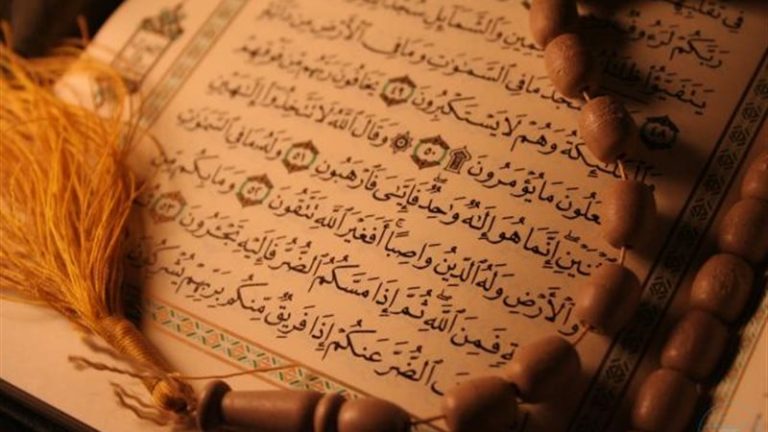 فِي تَقَلُّبِهِمْ
رَبَّكُمْ لَرَءُوفٌ
يَتَفَيَّؤُا۟ ظِلَـٰلُهُ مِينِ وَٱلشَّمَآئِلِ سُجَّدًا
سْجُدُ مَا فِى ٱلسَّمَـٰوَٰتِ وَمَا فِى ٱلْأَرْضِ مِن دَآبَّةٍ
وَٱلْمَلَـٰٓئِكَةُ وَهُمْ لَا يَسْتَكْبِرُونَ ٤٩ يَخَافُونَ رَبَّهُم مِّن فَوْقِهِمْ
فْعَلُونَ مَا يُؤْمَرُونَ ۩ ٥٠ ۞ وَقَالَ ٱللَّهُ لَا تَتَّخِذُوٓا۟ إِلَـٰهَيْنِ
نَيْنِ إِنَّمَا هُوَ إِلَـٰهٌ وَٰحِدٌ فَإِيَّـٰىَ فَٱرْهَبُونِ ٥١ وَلَهُۥ مَا فِى ٱلسَّمَـٰوَٰتِ
وَٱلْأَرْضِ وَلَهُ ٱلدِّينُ وَاصِبًا أَفَغَيْرَ ٱللَّهِ تَتَّقُونَ ٥٢ وَمَا بِكُم مِّن
ةٍ فَمِنَ ٱللَّهِ ثُمَّ إِذَا مَسَّكُمُ ٱلضُّرُّ فَإِلَيْهِ تَجْـَٔرُونَ ٥٣ ثُمَّ
فَ ٱلضُّرَّ عَنكُمْ إِذَا فَرِيقٌ مِّنكُم بِرَبِّهِمْ يُشْرِكُونَ